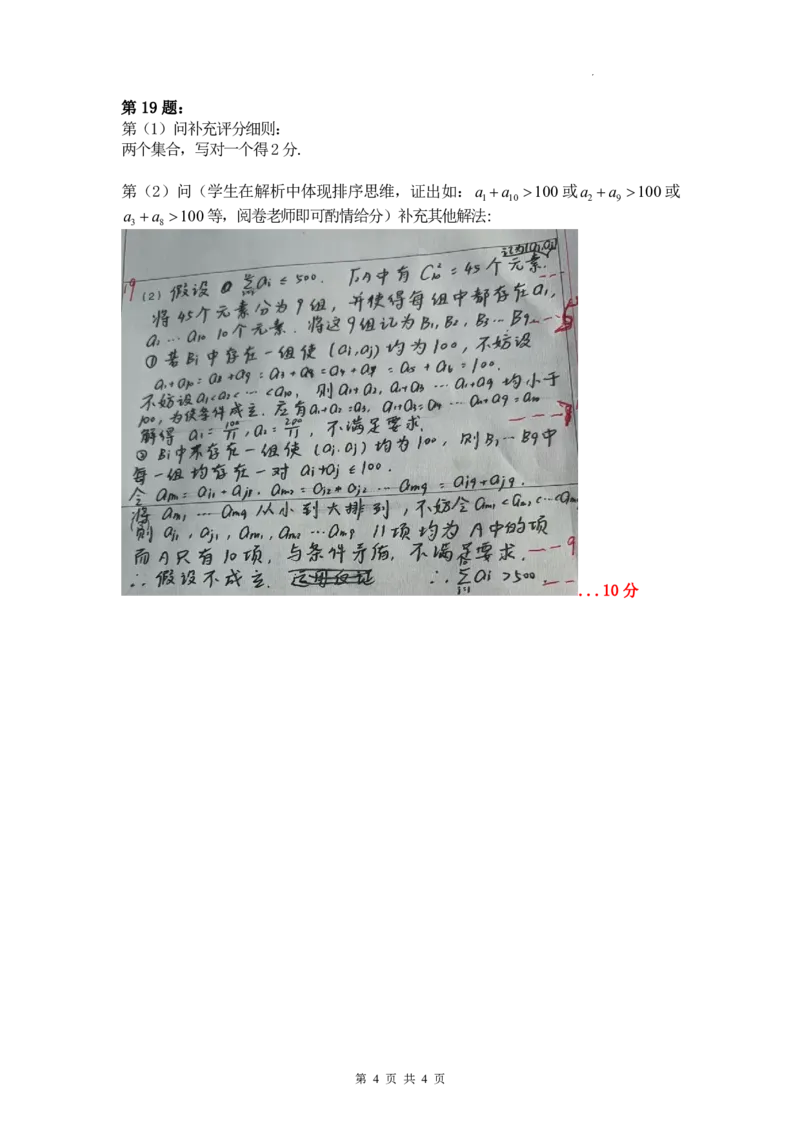 第 19 题:
第（1）问补充评分细则:
两个集合，写对一个得2分.
第（2）问（学生在解析中体现排序思维，证出如: a₁+a₁₀>100或a₂+a₉>100或
a₃+a₈>100等，阅卷老师即可酌情给分）补充其他解法:
记为(ai,aj)
19 (2) 假设 ∑ai ≤ 500. 则A中有 C₁₀² = 45个元素.
将45个元素分为9组, 并使得每组中都存在a₁,
a₁ … a₁₀ 10个元素. 将这9组记为B₁, B₂, B₃ … B₉
①若Bi中存在一组使(ai,aj)均为100, 不妨设
a₁+a₁₀ = a₂+a₉ = a₃+a₈ = a₄+a₇ = a₅+a₆ = 100.
不妨设a₁<a₂< … <a₁₀, 则a₁+a₂, a₁+a₃ … a₁+a₉ 均小于
100, 为使条件成立. 应有a₁+a₂=a₃, a₁+a₃=a₄ … a₁+a₉=a₁₀
解得 a₁ = 100/11, a₂ = 200/11, 不满足要求.
②Bi中不存在一组使(ai,aj)均为100, 则B₁…B₉中
每一组均存在一对 ai+aj ≤ 100.
令 am₁ = ai₁+aj₁, am₂ = ai₂+aj₂ … am₉ = ai₉+aj₉.
将 am₁ … am₉ 从小到大排列, 不妨令am₁<am₂<…<am₉
则 ai₁, aj₁, am₁, am₂ … am₉ 11项均为A中的项
而A只有10项, 与条件矛盾, 不满足要求. 9
∴假设不成立. ∴ ∑ai >500.
...10分
第 4 页 共 4 页